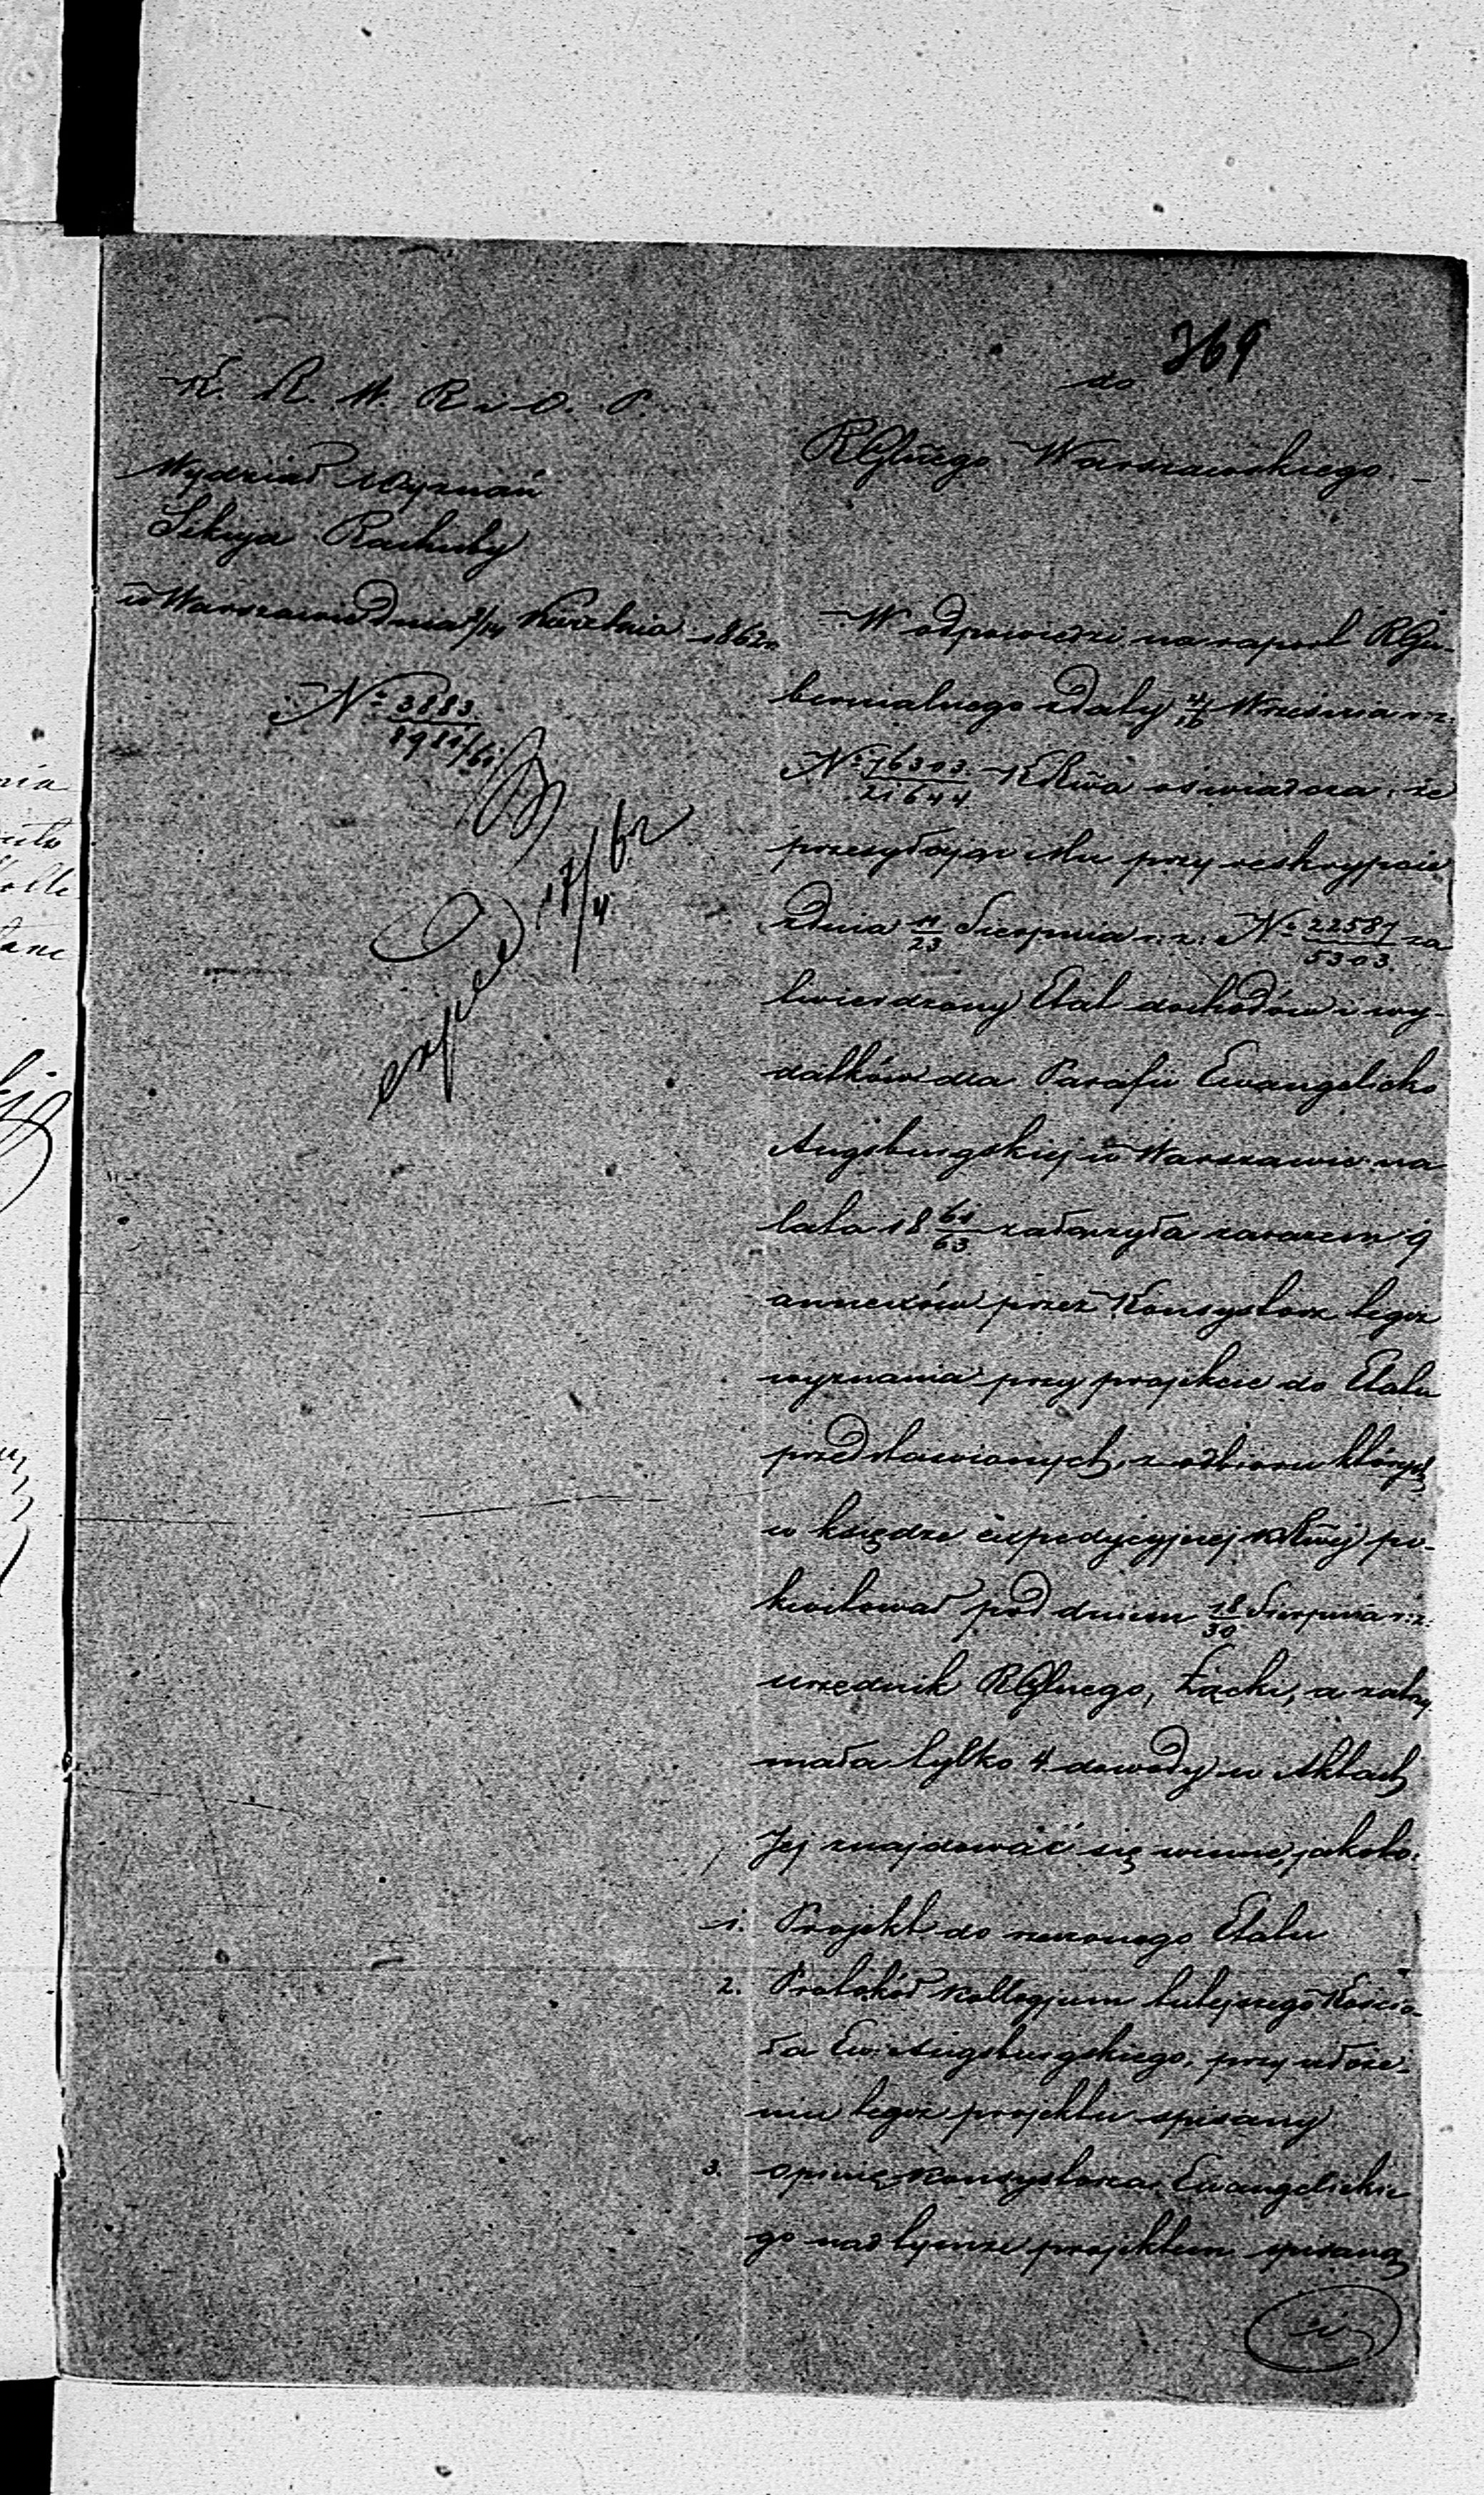 369
K. R. W. R. i O. P.
Wydział Wyznań
Sekcja Rachuby
w Warszawie dnia 2/14 Kwietnia 1862 r.
№ 3883
8981/61
exped 17/4 62
do
RGlnego Warszawskiego
W odpowiedzi na raport RGu-
bernialnego z daty 4/16 Września r: z:
№ 76303/21644 KRwa oświadcza, że
przesyłając Mu przy reskrypcie
z dnia 11/23 Sierpnia r: z: № 22587/5303 za
twierdzony Etat dochodów i wy-
datków dla Parafii Ewangelicko
Augsburgskiej w Warszawie na
lata 18 61/63 załączyła zarazem 9
annexów przez Konsystorz tegoż
wyznania przy projekcie do Etatu
przedstawionych, z odbioru których
w księdze expedycyjnej KRwej po-
kwitował pod dniem 18/30 Sierpnia r: z:
urzędnik RGlnego, Łącki, a zatrzy
mała tylko 4 dowody w Aktach
Jej znajdować się winne, jakoto:
1. Projekt do rzeczonego Etatu
2. Protokół Kollegjum tutejszego Kościo-
ła Ew: Augsburgskiego, przy ułoże-
niu tegoż projektu spisany
3. Opinię Konsystorza Ewangelickie
go nad tymże projektem spisaną